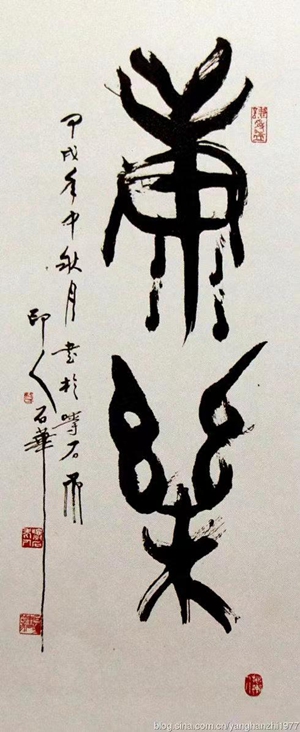 康樂
甲戌年中秋月書於石
印人石華
blog.sina.com.cn/yanghanzhi1977